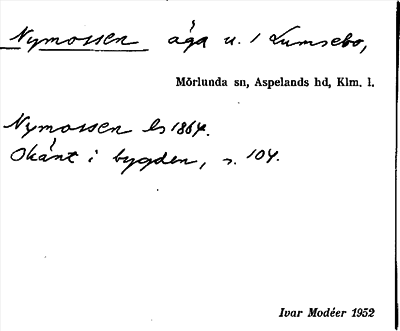 Nymossen äga u. 1 Lumsebo,
Mörlunda sn, Aspelands hd, Klm. l.
Nymossen ls 1864.
Okänt i bygden, s. 104.
Ivar Modéer 1952